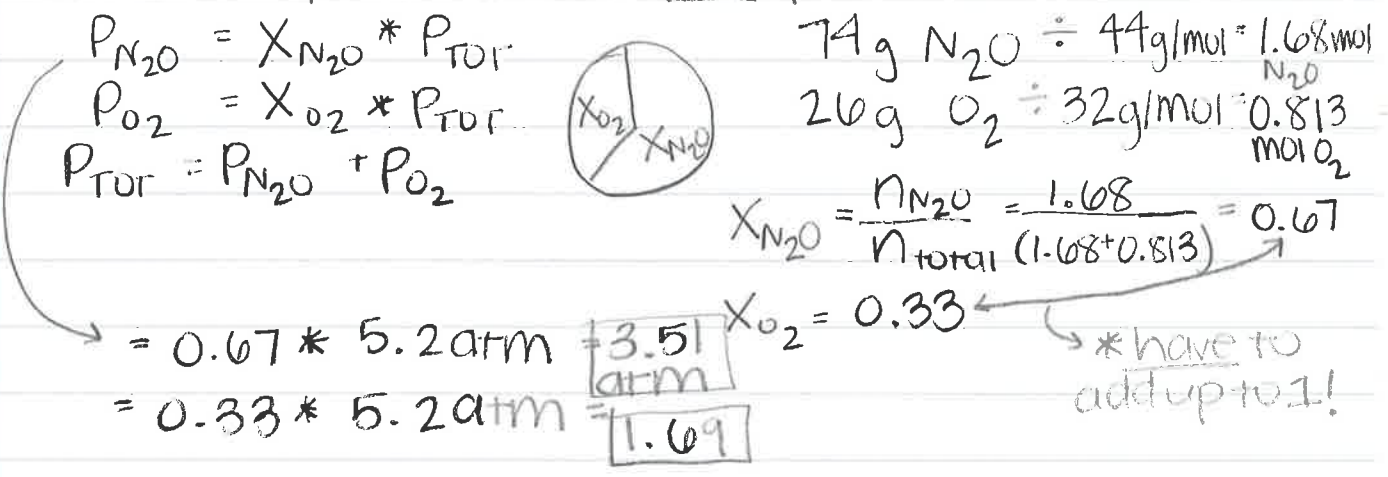 P_N₂O = X_N₂O * P_TOT
P_O₂ = X_O₂ * P_TOT
P_TOT = P_N₂O + P_O₂
X_O₂
X_N₂O
74g N₂O ÷ 44g/mol = 1.68mol
N₂O
26g O₂ ÷ 32g/mol = 0.813
mol O₂
X_N₂O = n_N₂O / n_total = 1.68 / (1.68+0.813) = 0.67
X_O₂ = 0.33
* have to
add up to 1!
= 0.67 * 5.2 atm = 3.51
atm
= 0.33 * 5.2 atm = 1.69